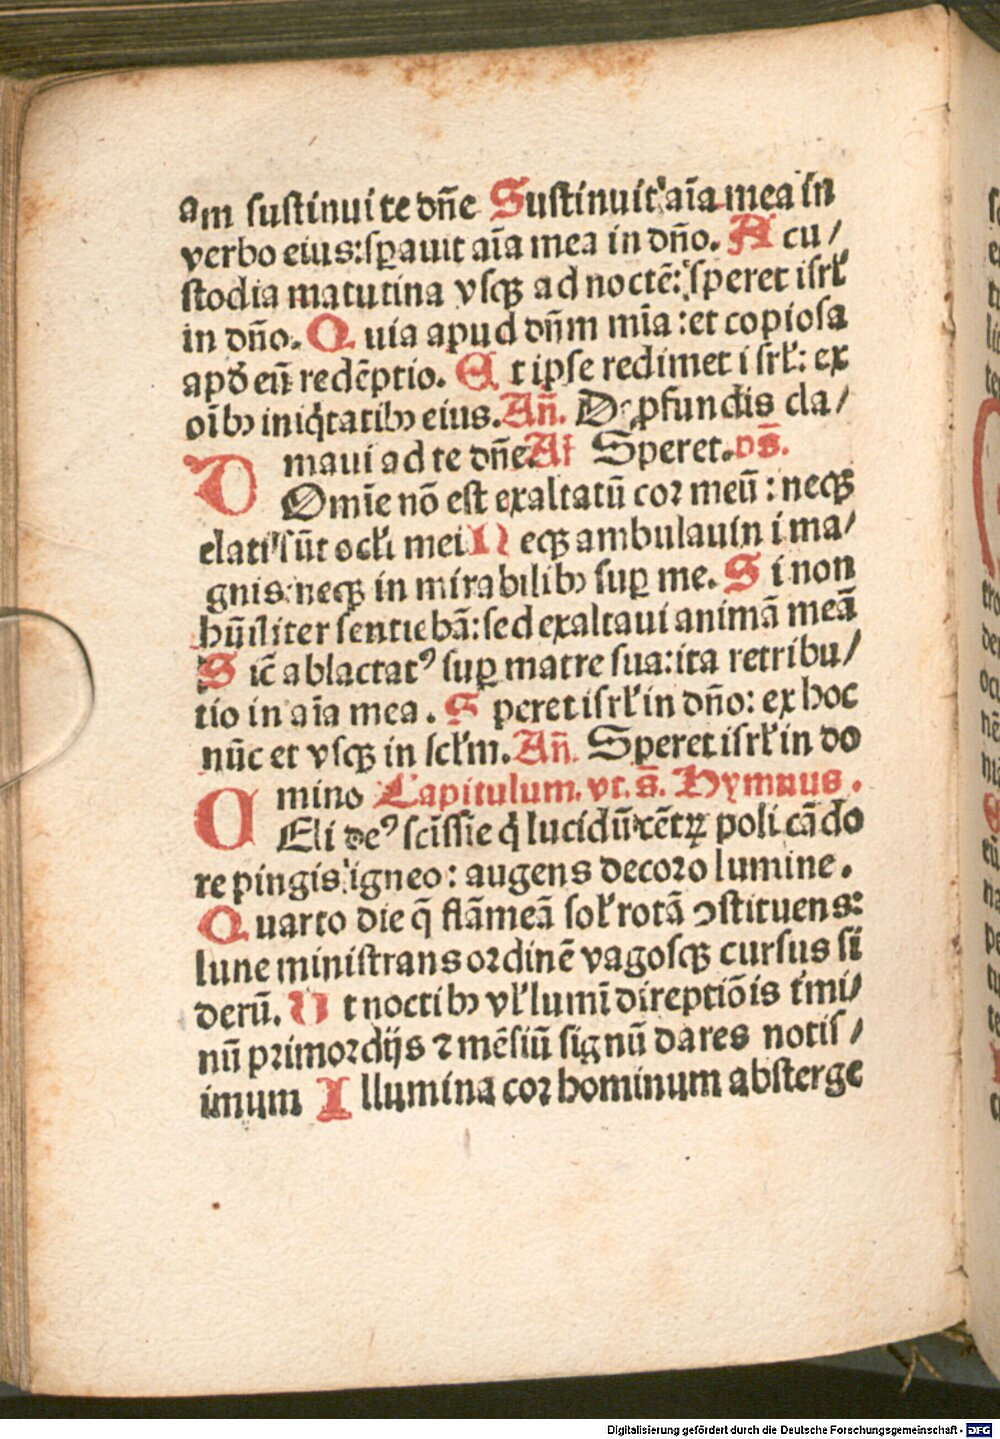 am sustinui te dn̄e Sustinuit aīa mea in
verbo eius: sꝑauit aīa mea in dn̄o. A cu/
stodia matutina vsqꝫ ad noctē: speret isrł
in dn̄o. Quia apud dn̄m mīa: et copiosa
apð eū redēptio. Et ipse redimet isrł: ex
oībꝫ iniq̇tatibꝫ eius. An̄. De ꝓfundis cla/
maui ad te dn̄e. Speret. vs̄.
Domīe nō est exaltatū cor meū: neqꝫ
elati sūt ocłi mei Neqꝫ ambulaui in ma/
gnis: neqꝫ in mirabilibꝫ suꝑ me. Si non
hūiliter sentiebā: sed exaltaui animā meā
Sic̄ ablactatꝰ suꝑ matre sua: ita retribu/
tio in aīa mea. Speret isrł in dn̄o: ex hoc
nūc et vsqꝫ in scłm. An̄. Speret isrł in do
mino Capitulum. vt. s̄. Hymnus.
Celi deꝰ scīssie q̇ lucidū cētꝝ poli cādo
re pingis igneo: augens decoro lumine.
Quarto die q̄ flāmeā soł rotā ꝯstituens:
lune ministrans ordinē vagosqꝫ cursus si
derū. Ut noctibꝫ vł lumī direptiōis t̓mi/
nū primordijs ⁊ mēsiū signū dares notis/
imum Illumina cor hominum absterge
Digitalisierung gefördert durch die Deutsche Forschungsgemeinschaft - DFG